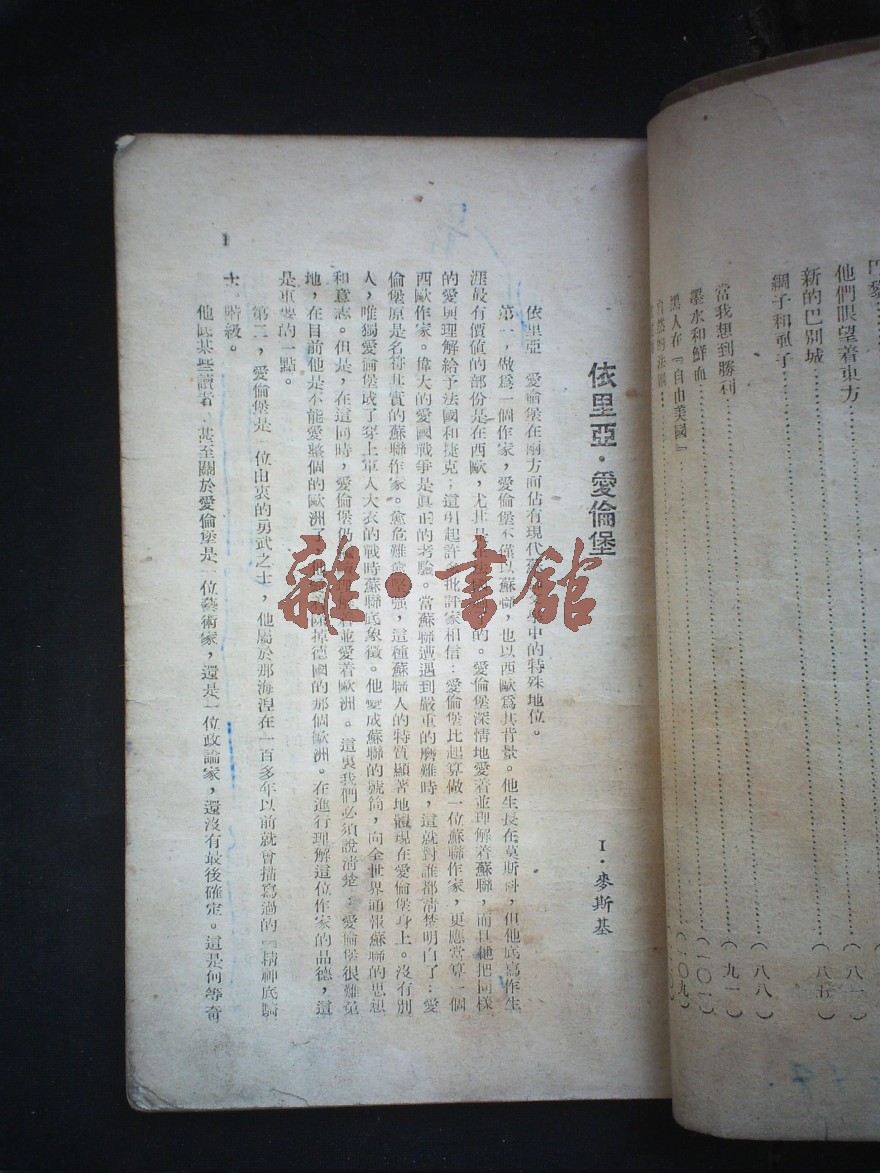 門
他們眼望着東方……(八一)
新的巴別城……(八五)
綢子和虱子……(八八)
當我想到勝利……(九一)
墨水和鮮血……(一〇一)
黑人在『自由美國』……(一〇九)
依里亞·愛倫堡
I·麥斯基
依里亞 愛倫堡在兩方面佔有現代 學中的特殊地位。
第一,做爲一個作家,愛倫堡不僅以蘇聯,也以西歐爲其背景。他生長在莫斯科,但他底寫作生
涯最有價值的部份是在西歐,尤其是 的。愛倫堡深情地愛着並理解着蘇聯,而且他把同樣
的愛與理解給予法國和捷克;這引起許 批評家相信:愛倫堡比起算做一位蘇聯作家,更應當算一個
西歐作家。偉大的愛國戰爭是眞正的考驗。當蘇聯遭遇到嚴重的磨難時,這就對誰都清楚明白了:愛
倫堡原是名符其實的蘇聯作家。愈危難愈堅強,這種蘇聯人的特質顯著地體現在愛倫堡身上。沒有別
人,唯獨愛倫堡成了穿上軍人大衣的戰時蘇聯底象徵。他變成蘇聯的號筒,向全世界通報蘇聯的思想
和意志。但是,在這同時,愛倫堡仍 着並愛着歐洲。這裏我們必須說清楚:愛倫堡很難完
地,在目前他是不能愛整個的歐洲了, 掉德國的那個歐洲。在進行理解這位作家的品德,這
是重要的一點。
第二,愛倫堡是一位由衷的勇武之士,他屬於那海涅在一百多年以前就曾描寫過的『精神底騎
士』階級。
他底某些讀者,甚至關於愛倫堡是一位藝術家,還是一位政論家,還沒有最後確定。這是何等奇
1
雜·書館